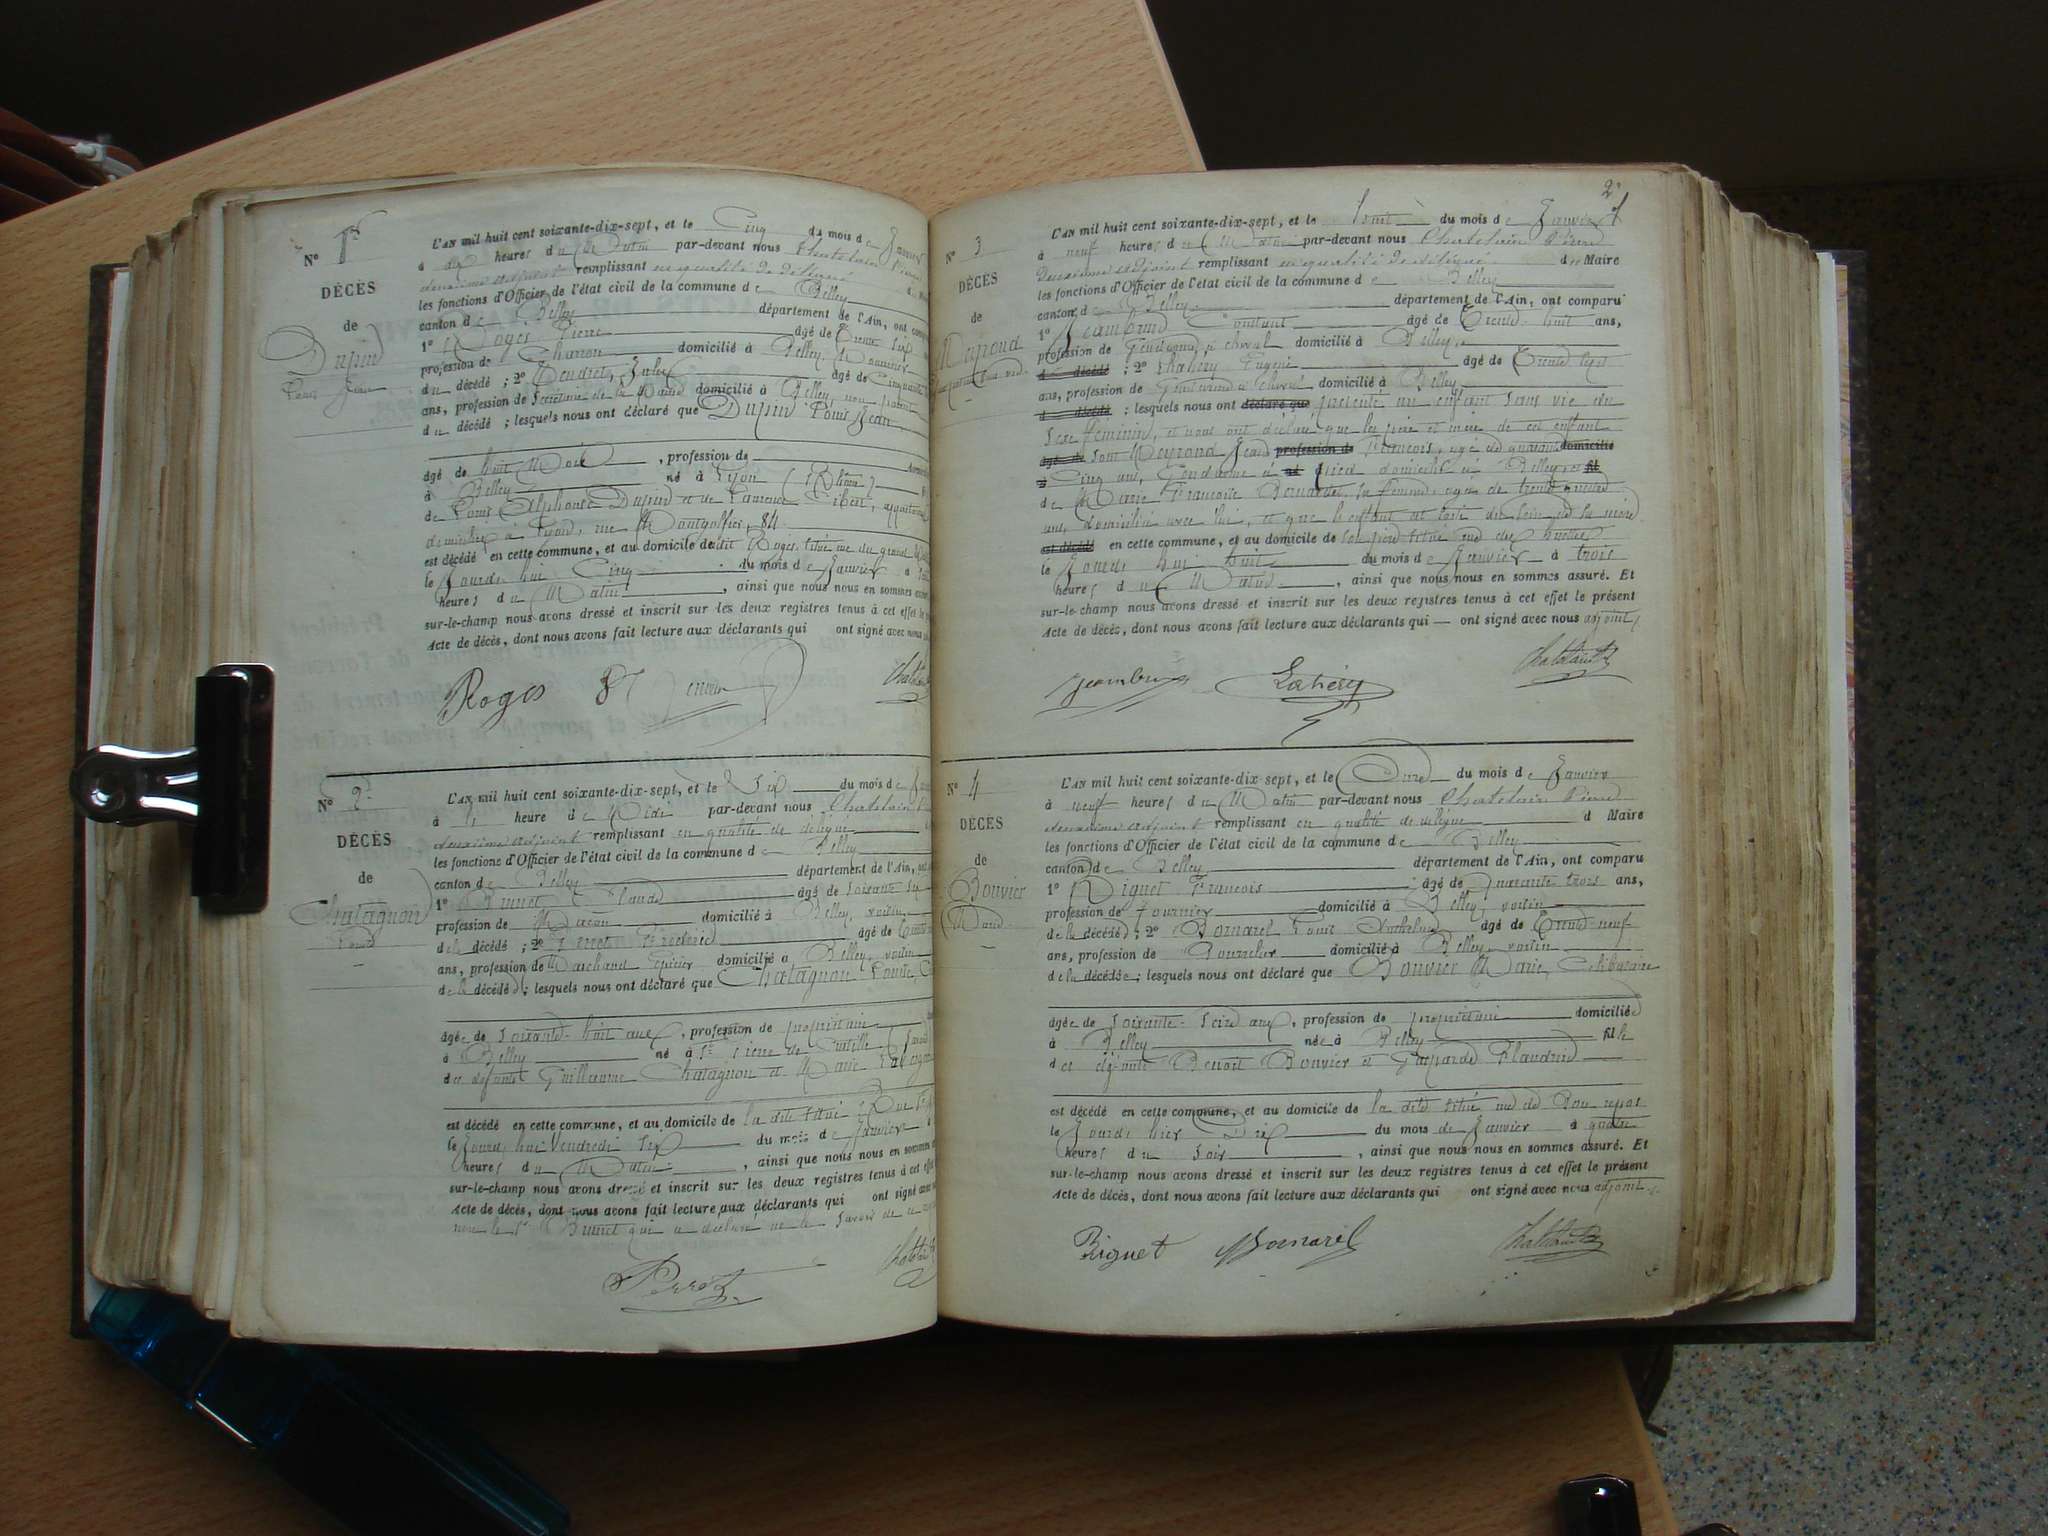 N° 1er
DÉCÈS
de
Dupin
Louis Jean
L'AN mil huit cent soixante-dix-sept, et le Cinq du mois de Janvier
à dix heures du Matin par-devant nous Chatelain Pierre
deuxième adjoint remplissant en qualité de délégué
les fonctions d'Officier de l'état civil de la commune de Belley
canton de Belley département de l'Ain, ont
1° Roges Pierre âgé de Trente six
profession de Charron domicilié à Belley,
du décédé ; 2° Jules âgé de Cinquante
ans, profession de Secrétaire de la Mairie domicilié à Belley non parent
du décédé ; lesquels nous ont déclaré que Dupin Louis Jean
âgé de huit Mois, profession de
à Belley né à Lyon (Rhône)
de Louis Alphonse Dupin et de
domiciliés à Lyon, rue Montgolfier, 84
est décédé en cette commune, et au domicile dudit Roges, situé rue du grand
le Jourd'hui Cinq du mois de Janvier à
heures du Matin, ainsi que nous nous en sommes
sur-le-champ nous avons dressé et inscrit sur les deux registres tenus à cet effet le
Acte de décès, dont nous avons fait lecture aux déclarants qui ont signé avec nous
Roges
N° 2
DÉCÈS
de
Chatagnon
Louise
L'AN mil huit cent soixante-dix-sept, et le Six du mois de
à heure de Midi par-devant nous Chatelain
deuxième adjoint remplissant en qualité de délégué
les fonctions d'Officier de l'état civil de la commune de Belley
canton de Belley département de l'Ain,
1° Brunet Claude âgé de Soixante
profession de Maçon domicilié à Belley, voisin
de la décédée ; 2° Perret Frédéric âgé de
ans, profession de Marchand épicier domicilié à Belley, voisin
de la décédée ; lesquels nous ont déclaré que Chatagnon Louise,
âgée de Soixante-huit ans, profession de propriétaire
à Belley né à St
des défunts Guillaume Chatagnon et Marie
est décédé en cette commune, et au domicile de la dite situé Rue
le Jourd'hui Vendredi Six du mois de Janvier
heures du Matin, ainsi que nous nous en sommes
sur-le-champ nous avons dressé et inscrit sur les deux registres tenus à cet effet
Acte de décès, dont nous avons fait lecture aux déclarants qui ont signé avec
le Sr Brunet qui a déclaré ne le savoir de ce
2
N° 3
DÉCÈS
de
Meyrond
L'AN mil huit cent soixante-dix-sept, et le huit du mois de Janvier
à neuf heures du Matin par-devant nous Chatelain Pierre
deuxième adjoint remplissant en qualité de délégué du Maire
les fonctions d'Officier de l'état civil de la commune de Belley
canton de Belley département de l'Ain, ont comparu
1° Jeambrun Constant âgé de Trente-huit ans,
profession de Gendarme à cheval domicilié à Belley,
du décédé ; 2° Lahiery Eugène âgé de Trente sept
ans, profession de Gendarme à cheval domicilié à Belley
du décédé ; lesquels nous ont déclaré que présenté un enfant sans vie du
sexe féminin, et nous ont déclaré que les père et mère de cet enfant
âgé de sont Meyrond Jean profession de François, âgé de quarante domicilié
à Cinq ans, Gendarme à né pied domicilié à Belley, et fil
de Marie Françoise sa femme, âgée de trente
ans, domiciliée avec lui, et que l'enfant est sorti du sein de sa mère
est décédé en cette commune, et au domicile de son père situé rue des
le Jourd'hui huit du mois de Janvier à trois
heures du Matin, ainsi que nous nous en sommes assuré. Et
sur-le-champ nous avons dressé et inscrit sur les deux registres tenus à cet effet le présent
Acte de décès, dont nous avons fait lecture aux déclarants qui — ont signé avec nous adjoint.
Jeambrun Lahiery
N° 4
DÉCÈS
de
Bouvier
Marie
L'AN mil huit cent soixante-dix-sept, et le Onze du mois de Janvier
à neuf heures du Matin par-devant nous Chatelain Pierre
deuxième adjoint remplissant en qualité de délégué d Maire
les fonctions d'Officier de l'état civil de la commune de Belley
canton de Belley département de l'Ain, ont comparu
1° Riguet François âgé de Quarante trois ans,
profession de fournier domicilié à Belley, voisin
de la décédée ; 2° Bornarel Louis Anthelme âgé de Trente-neuf
ans, profession de Bourrelier domicilié à Belley, voisin
de la décédée ; lesquels nous ont déclaré que Bouvier Marie, Célibataire
âgée de Soixante-Seize ans, profession de propriétaire domiciliée
à Belley née à Belley fille
des défunts Benoît Bouvier et Gasparde Flandrin
est décédé en cette commune, et au domicile de la dite situé rue du Bon repos
le Jourd'hier Dix du mois de Janvier à quatre
heures du Soir, ainsi que nous nous en sommes assuré. Et
sur-le-champ nous avons dressé et inscrit sur les deux registres tenus à cet effet le présent
Acte de décès, dont nous avons fait lecture aux déclarants qui ont signé avec nous adjoint.
Riguet Bornarel